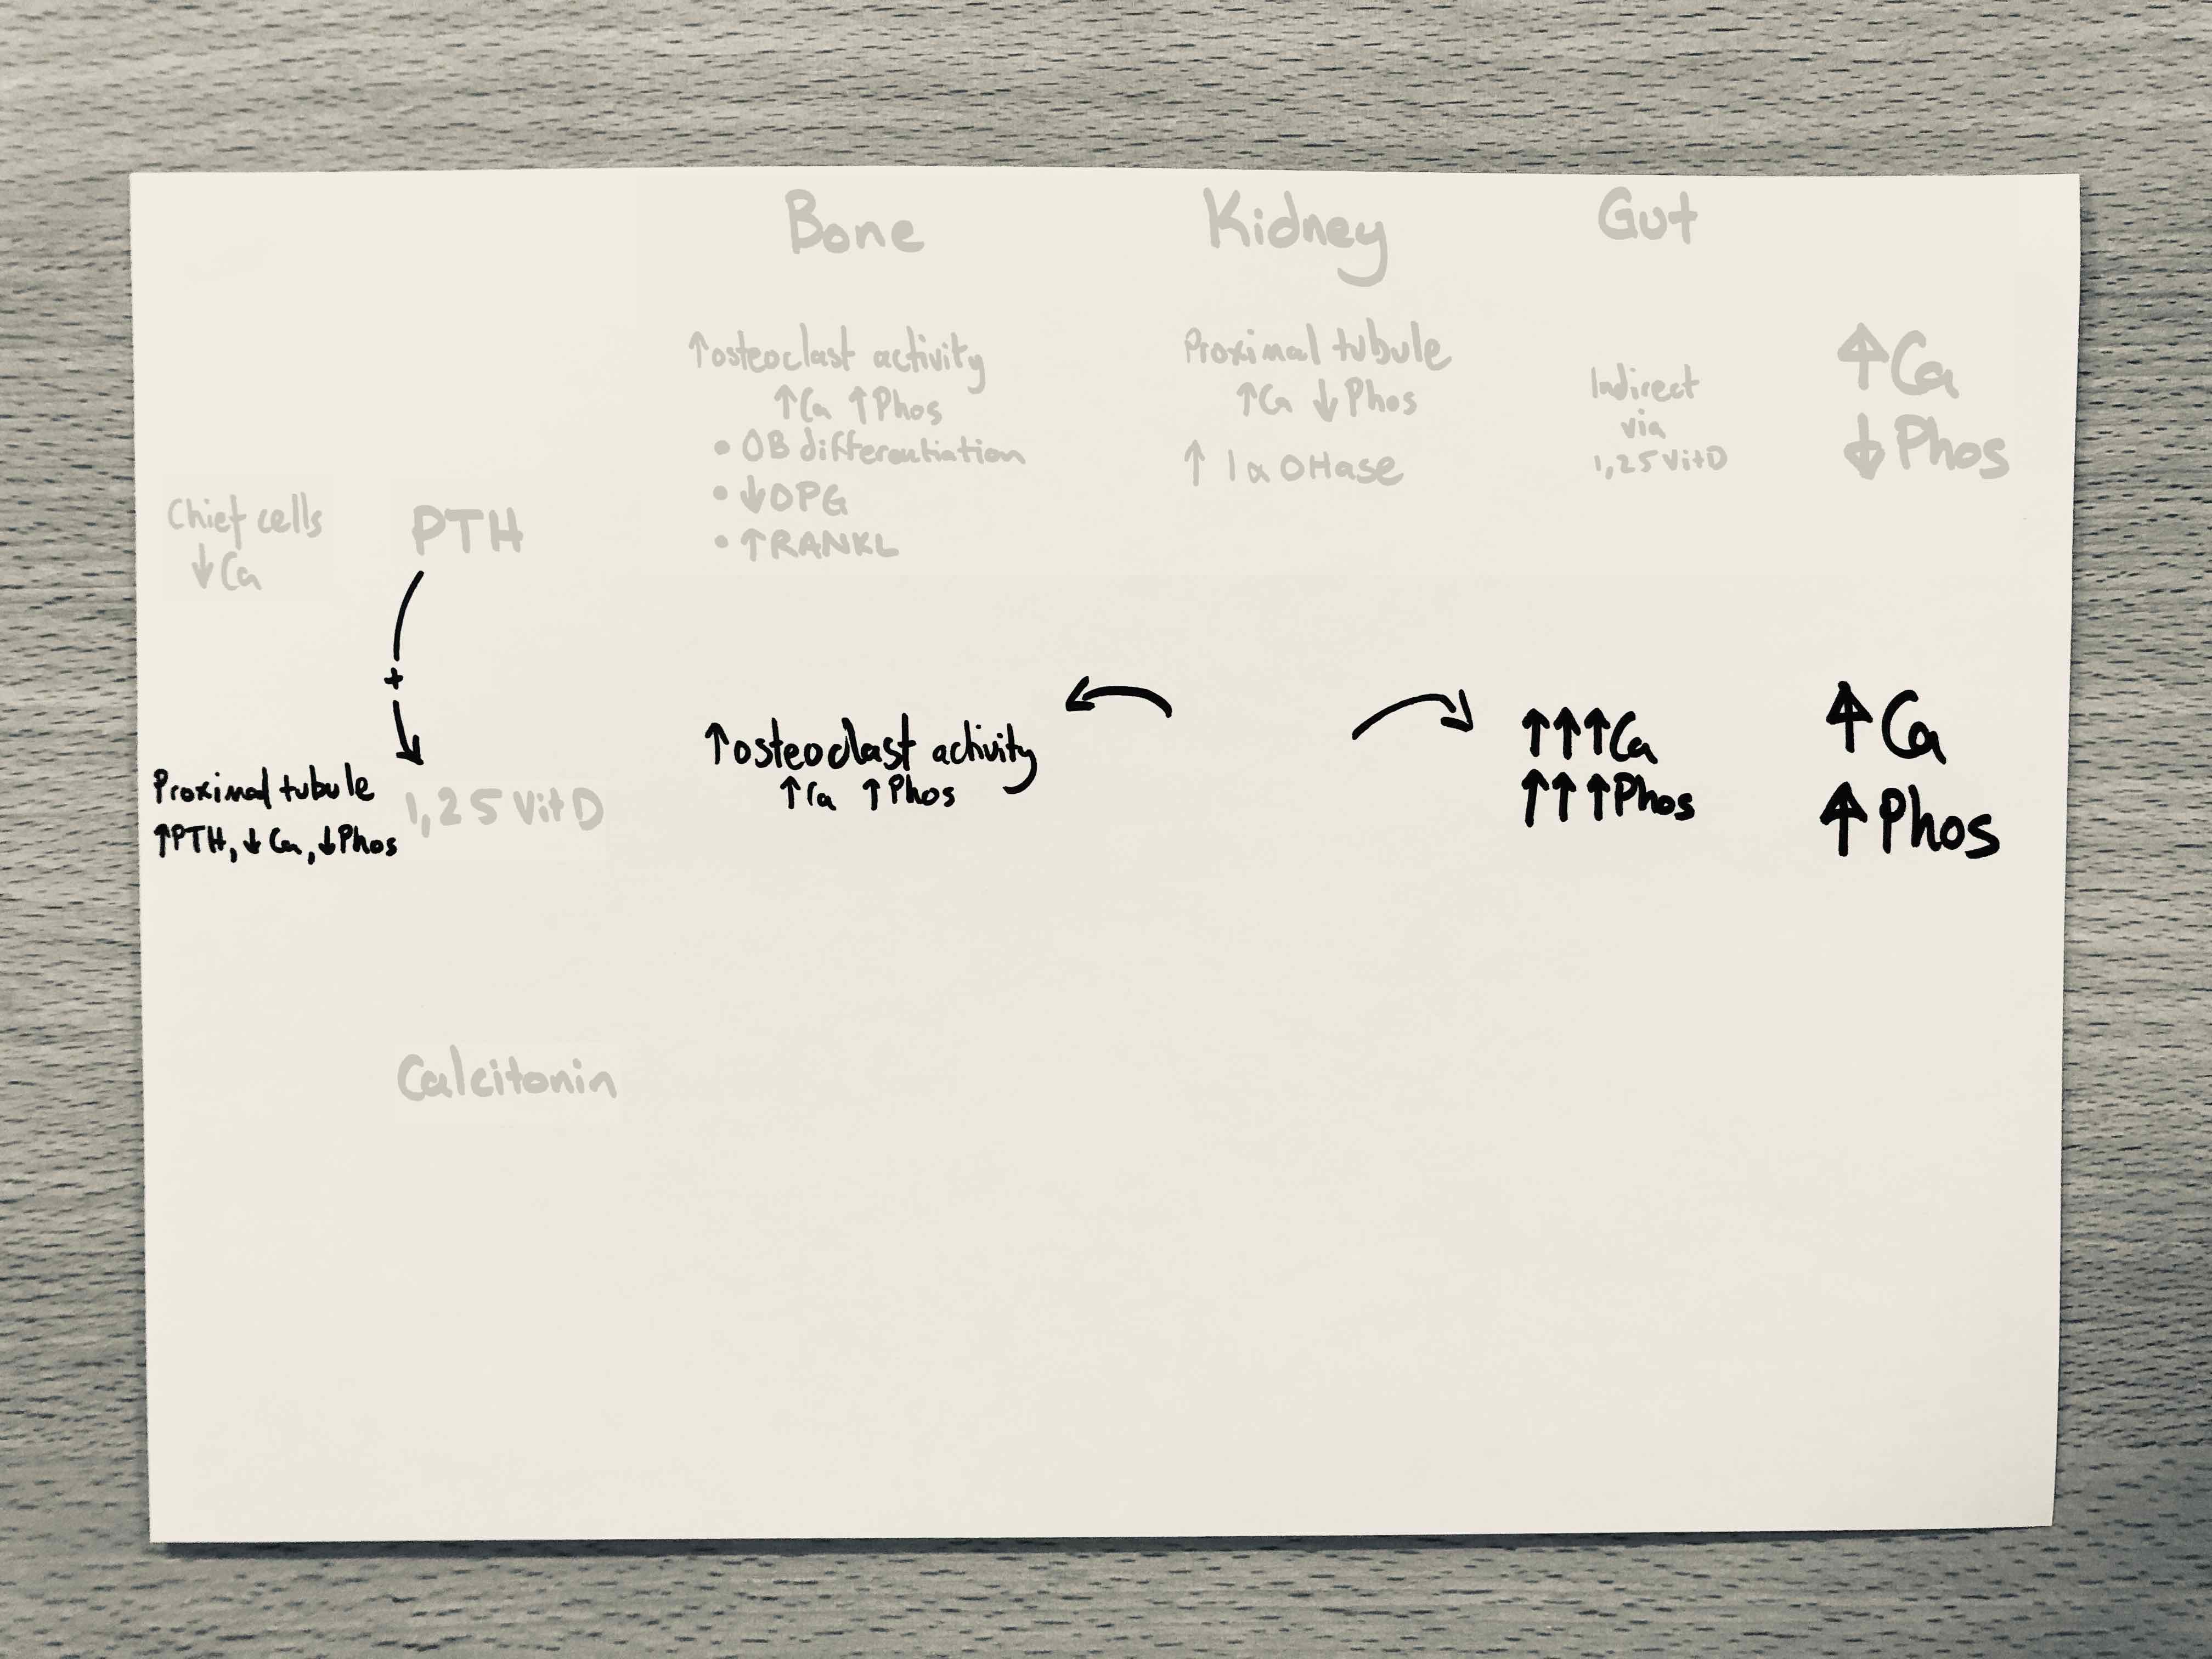 Bone Kidney Gut
↑osteoclast activity
↑Ca ↑Phos
• OB differentiation
• ↓OPG
• ↑RANKL
Proximal tubule
↑Ca ↓Phos
↑ 1α OHase
Indirect
via
1,25 VitD
↑Ca
↓Phos
Chief cells
↓Ca
PTH
+
Proximal tubule
↑PTH, ↓Ca, ↓Phos
1,25 VitD
↑osteoclast activity
↑Ca ↑Phos
↑↑↑Ca
↑↑↑Phos
↑Ca
↑Phos
Calcitonin